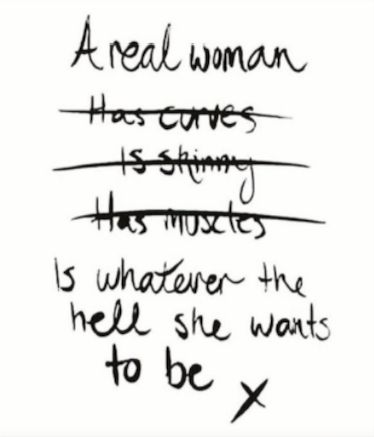 A real woman
Has curves
Is skinny
Has muscles
Is whatever the
hell she wants
to be x